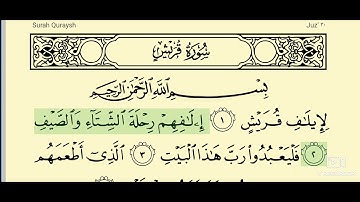 Surah Quraysh Juz' ٣٠
سُورَةُ قُرَيْشٍ
بِسْمِ ٱللَّهِ ٱلرَّحْمَٰنِ ٱلرَّحِيمِ
لِإِيلَٰفِ قُرَيْشٍ ١ إِۦلَٰفِهِمْ رِحْلَةَ ٱلشِّتَآءِ وَٱلصَّيْفِ
٢ فَلْيَعْبُدُوا۟ رَبَّ هَٰذَا ٱلْبَيْتِ ٣ ٱلَّذِىٓ أَطْعَمَهُم